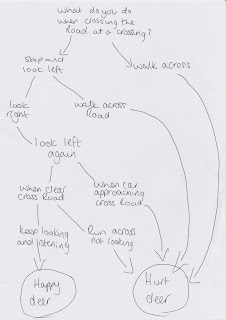 What do you do
when crossing the
Road at a crossing?
Stop and
look left
walk across
look
right
walk across
Road
look left
again
when clear
cross Road
When car
approaching
cross Road
keep looking
and listening
Run across
not looking
Happy
deer
Hurt
deer